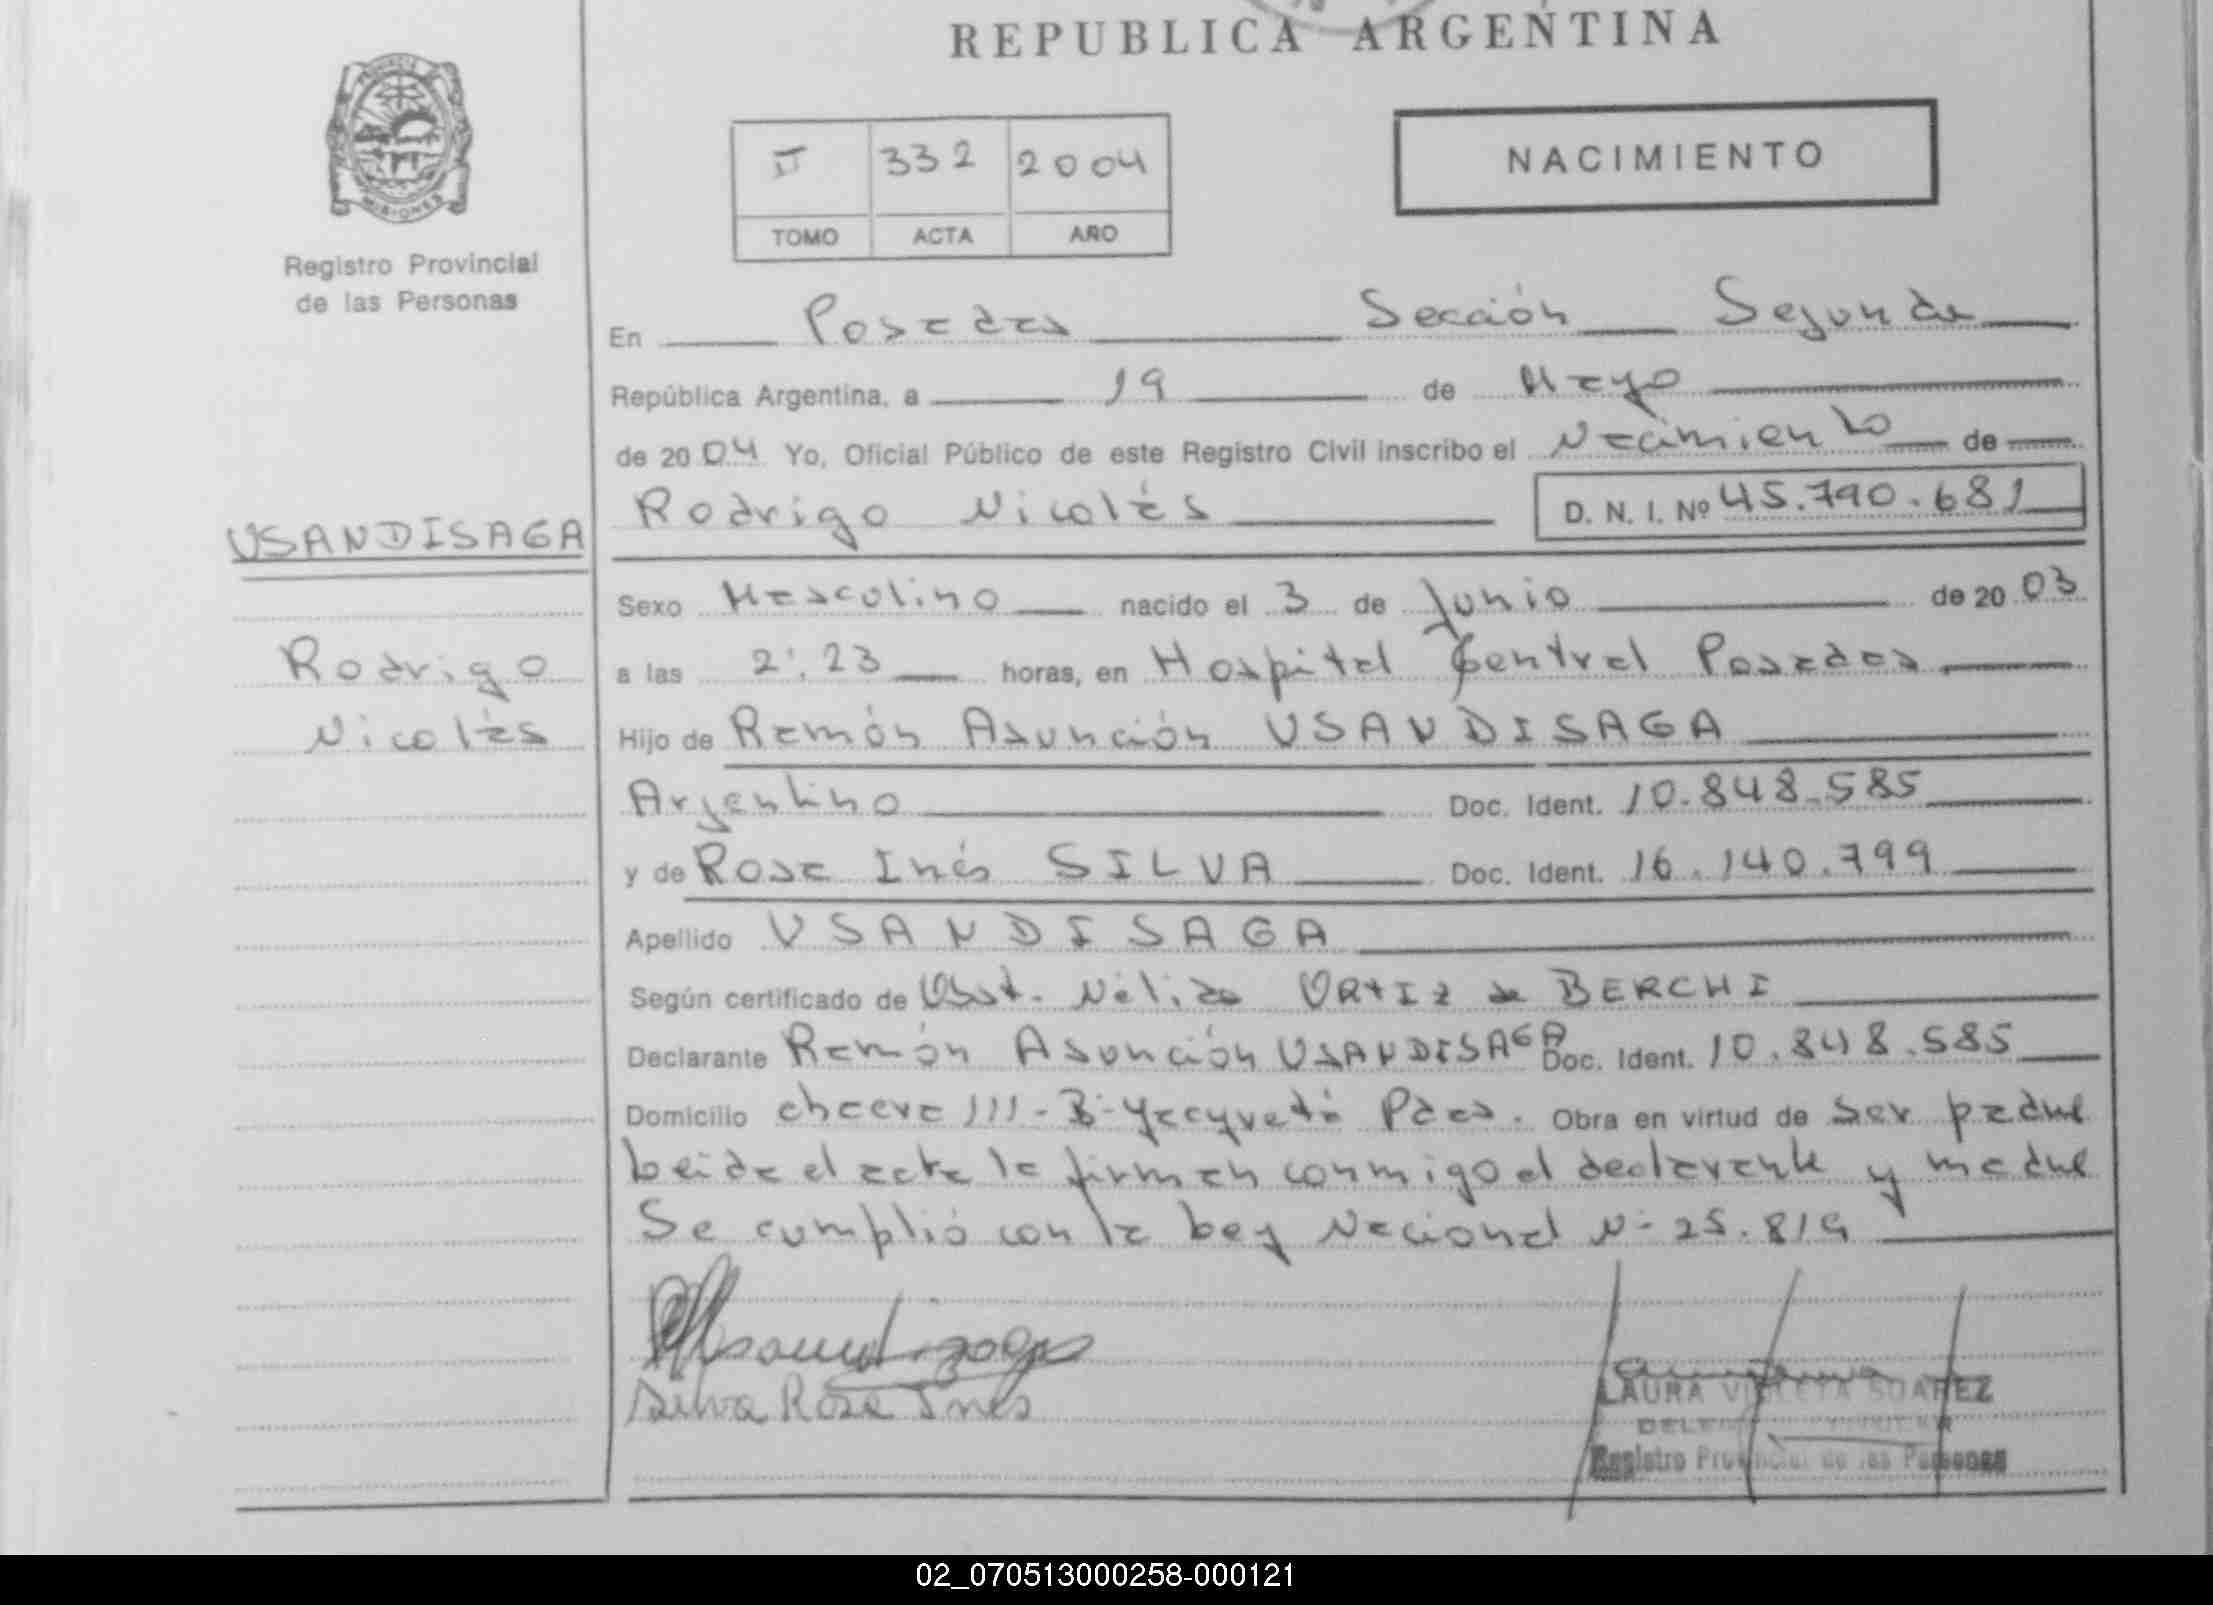 REPUBLICA ARGENTINA
PROVINCIA DE
MISIONES
Registro Provincial
de las Personas
II 332 2004
TOMO ACTA AÑO
NACIMIENTO
En Posadas Sección Segunda
República Argentina, a 19 de Mayo
de 2004 Yo, Oficial Público de este Registro Civil inscribo el Nacimiento de
USANDISAGA
Rodrigo Nicolás D. N. I. Nº 45.790.681
Sexo Masculino nacido el 3 de Junio de 2003
Rodrigo
a las 2:23 horas, en Hospital Central Posadas
Nicolás
Hijo de Ramón Asunción USANDISAGA
Argentino Doc. Ident. 10.848.585
y de Rosa Inés SILVA Doc. Ident. 16.140.799
Apellido USANDISAGA
Según certificado de Obst. Nélida ORTIZ de BERCHI
Declarante Ramón Asunción USANDISAGA Doc. Ident. 10.848.585
Domicilio chacra 111 - Bº Yacyretá Pdas. Obra en virtud de ser padre
Leida el acta la firman conmigo el declarante y madre
Se cumplió con la Ley Nacional Nº 25.819
Silva Rosa Ines
LAURA VIOLETA SUAREZ
Registro Provincial de las Personas
02_070513000258-000121